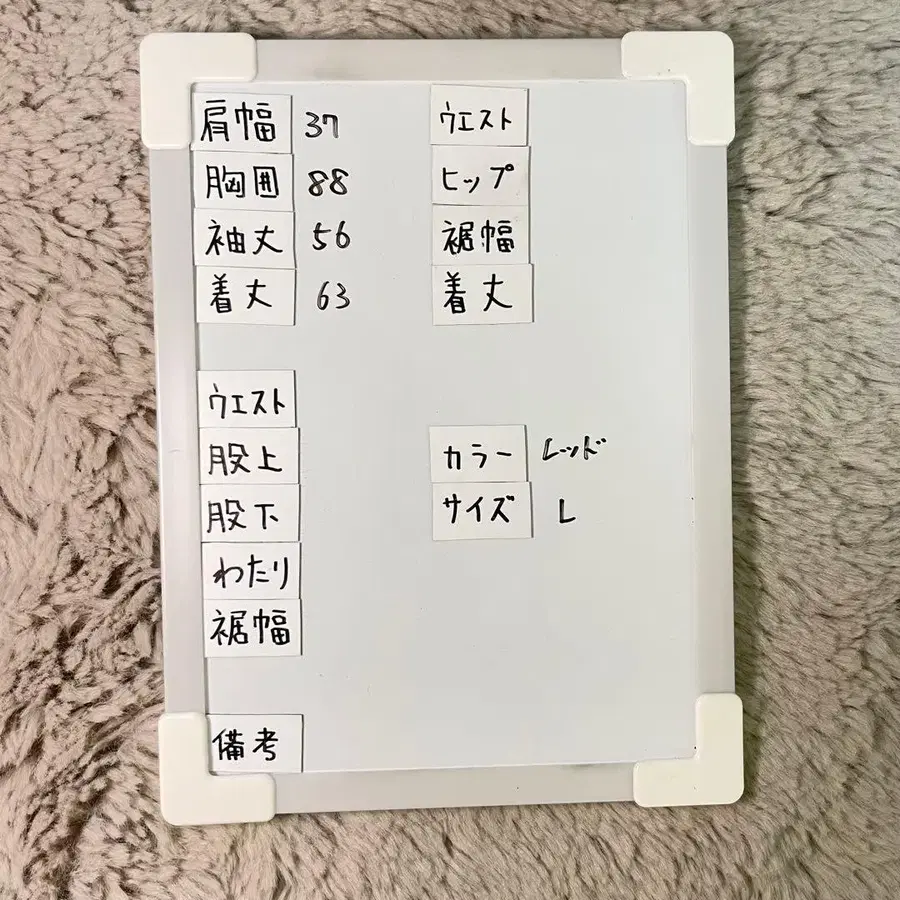 肩幅 37
胸囲 88
袖丈 56
着丈 63
ウエスト
股上
股下
わたり
裾幅
備考
ウエスト
ヒップ
裾幅
着丈
カラー レッド
サイズ L